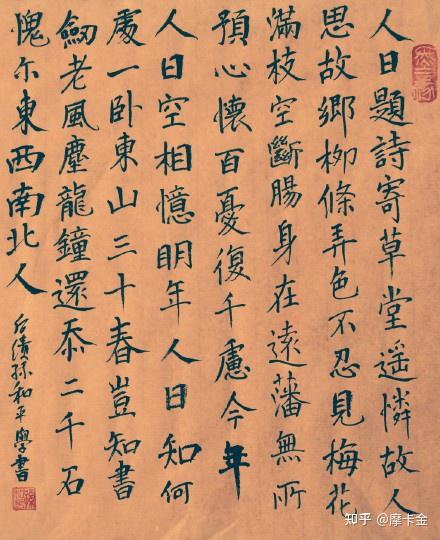 人日題詩寄草堂遥憐故人
思故鄉栁條弄色不忍見梅花
滿枝空斷腸身在遠藩無所
預心懷百憂復千慮今年
人日空相憶明年人日知何
處一卧東山三十春豈知書
劒老風塵龍鐘還忝二千石
愧尔東西南北人
后績孫和平學書
知乎 @摩卡金